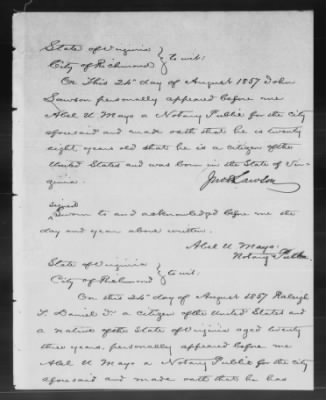 State of Virginia }
City of Richmond } to wit:
On This 24th day of August 1857 John
Lawson personally appeared before me
Abel U. Mayo a Notary Public for the city
aforesaid and made oath that he is twenty
eight years old that he is a citizen of the
United States and was born in the State of Vir-
ginia.
Jno Lawson
signed
Sworn to and acknowledged before me the
day and year above written.
Abel U. Mayo.
Notary Public.
State of Virginia }
City of Richmond } to wit:
On this 24th day of August 1857 Raleigh
T. Daniel Jr a citizen of the United States and
a native of the State of Virginia aged twenty
three years, personally appeared before me
Abel U. Mayo a Notary Public for the city
aforesaid and made oath that he has